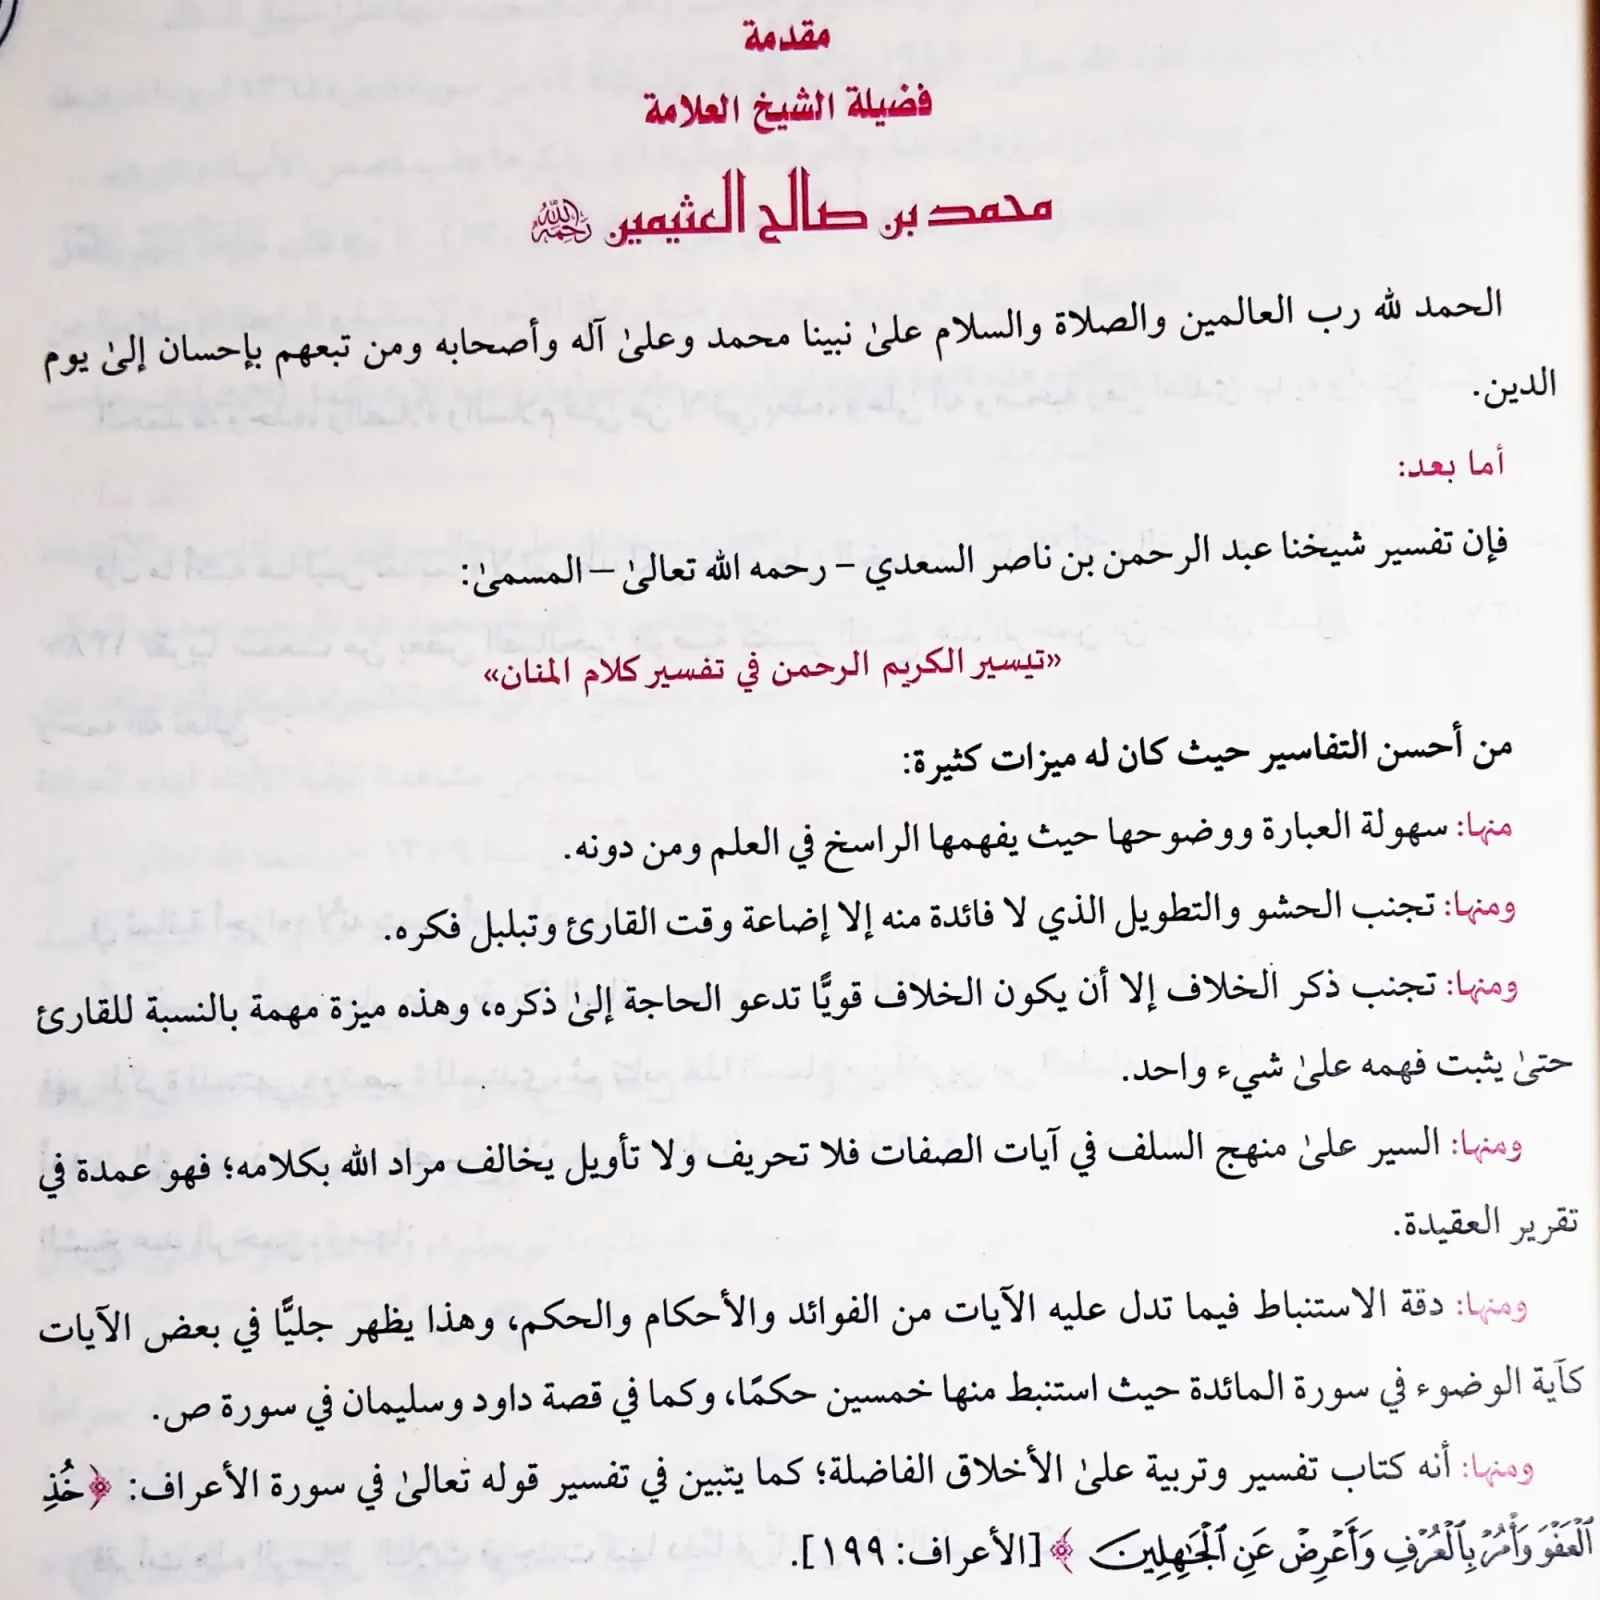 مقدمة
فضيلة الشيخ العلامة
محمد بن صالح العثيمين رحمه الله
الحمد لله رب العالمين والصلاة والسلام علىٰ نبينا محمد وعلىٰ آله وأصحابه ومن تبعهم بإحسان إلىٰ يوم
الدين.
أما بعد:
فإن تفسير شيخنا عبد الرحمن بن ناصر السعدي – رحمه الله تعالىٰ – المسمىٰ:
«تيسير الكريم الرحمن في تفسير كلام المنان»
من أحسن التفاسير حيث كان له ميزات كثيرة:
منها: سهولة العبارة ووضوحها حيث يفهمها الراسخ في العلم ومن دونه.
ومنها: تجنب الحشو والتطويل الذي لا فائدة منه إلا إضاعة وقت القارئ وتبلبل فكره.
ومنها: تجنب ذكر الخلاف إلا أن يكون الخلاف قويًّا تدعو الحاجة إلىٰ ذكره، وهذه ميزة مهمة بالنسبة للقارئ
حتىٰ يثبت فهمه علىٰ شيء واحد.
ومنها: السير علىٰ منهج السلف في آيات الصفات فلا تحريف ولا تأويل يخالف مراد الله بكلامه؛ فهو عمدة في
تقرير العقيدة.
ومنها: دقة الاستنباط فيما تدل عليه الآيات من الفوائد والأحكام والحكم، وهذا يظهر جليًّا في بعض الآيات
كآية الوضوء في سورة المائدة حيث استنبط منها خمسين حكمًا، وكما في قصة داود وسليمان في سورة ص.
ومنها: أنه كتاب تفسير وتربية علىٰ الأخلاق الفاضلة؛ كما يتبين في تفسير قوله تعالىٰ في سورة الأعراف: ﴿خُذِ
ٱلْعَفْوَ وَأْمُرْ بِٱلْعُرْفِ وَأَعْرِضْ عَنِ ٱلْجَٰهِلِينَ﴾ [الأعراف: ١٩٩].